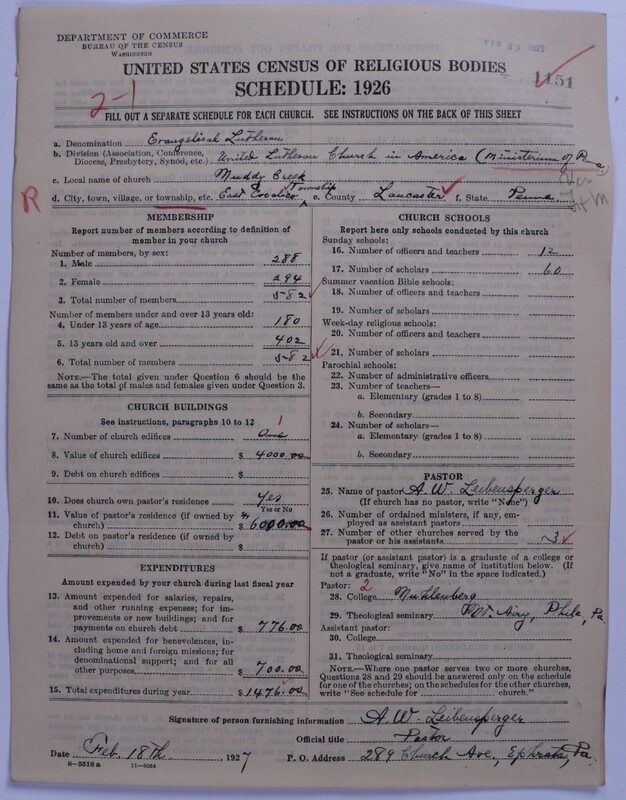 DEPARTMENT OF COMMERCE
BUREAU OF THE CENSUS
WASHINGTON
FEB 23 1927
UNITED STATES CENSUS OF RELIGIOUS BODIES
1151
SCHEDULE: 1926
2-1
FILL OUT A SEPARATE SCHEDULE FOR EACH CHURCH. SEE INSTRUCTIONS ON THE BACK OF THIS SHEET
a. Denomination Evangelical Lutheran
b. Division (Association, Conference, Diocese, Presbytery, Synod, etc.) United Lutheran Church in America (Ministerium of Pa.
c. Local name of church Muddy Creek
R d. City, town, village, or township, etc. East Cocalico Township e. County Lancaster f. State Penna
MEMBERSHIP
Report number of members according to definition of
member in your church
Number of members, by sex:
1. Male 288
2. Female 294
3. Total number of members 582
Number of members under and over 13 years old:
4. Under 13 years of age 180
5. 13 years old and over 402
6. Total number of members 582
NOTE.—The total given under Question 6 should be
same as the total of males and females given under Question 3.
CHURCH BUILDINGS
See instructions, paragraphs 10 to 12
1
7. Number of church edifices One
8. Value of church edifices $ 4000.00
9. Debt on church edifices $
10. Does church own pastor's residence Yes
Yes or No
11. Value of pastor's residence (if owned by
church) $ 6000.00
12. Debt on pastor's residence (if owned by
church) $
EXPENDITURES
Amount expended by your church during last fiscal year
13. Amount expended for salaries, repairs,
and other running expenses; for im-
provements or new buildings; and for
payments on church debt $ 776.00
14. Amount expended for benevolences, in-
cluding home and foreign missions; for
denominational support; and for all
other purposes $ 700.00
15. Total expenditures during year $ 1476.00
CHURCH SCHOOLS
Report here only schools conducted by this church
Sunday schools:
16. Number of officers and teachers 12
17. Number of scholars 60
Summer vacation Bible schools:
18. Number of officers and teachers
19. Number of scholars
Week-day religious schools:
20. Number of officers and teachers
21. Number of scholars
Parochial schools:
22. Number of administrative officers
23. Number of teachers—
a. Elementary (grades 1 to 8)
b. Secondary
24. Number of scholars—
a. Elementary (grades 1 to 8)
b. Secondary
PASTOR
25. Name of pastor A. W. Leibensperger
(If church has no pastor, write "None")
26. Number of ordained ministers, if any, em-
ployed as assistant pastors
27. Number of other churches served by the
pastor or his assistants 3
If pastor (or assistant pastor) is a graduate of a college or
theological seminary, give name of institution below. (If
not a graduate, write "No" in the space indicated.)
Pastor: 2
28. College Muhlenberg
29. Theological seminary Mt. Airy, Phila, Pa.
Assistant pastor:
30. College
31. Theological seminary
NOTE.—Where one pastor serves two or more churches,
Questions 28 and 29 should be answered only on the schedule
for one of the churches; on the schedules for the other churches,
write "See schedule for church."
Signature of person furnishing information A. W. Leibensperger
Official title Pastor
Date Feb. 18th, 1927 P. O. Address 289 Church Ave, Ephrata, Pa.
8-5518 a 11-9264